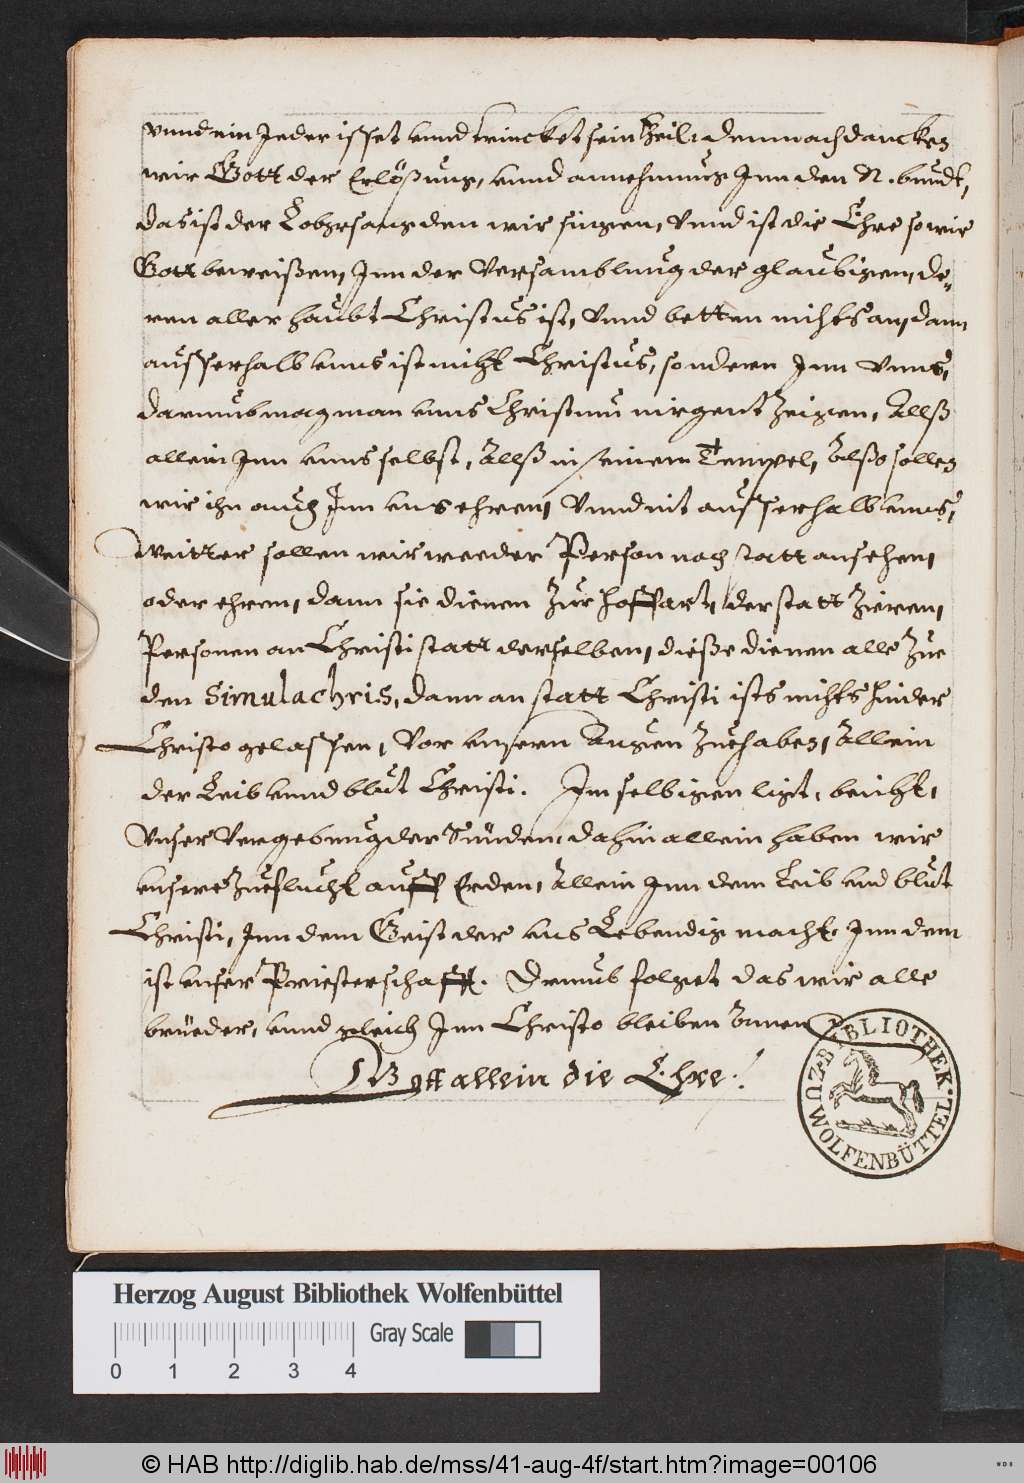 vnnd ein Jeder isset vnnd trincket sein theil, demnach dancken
wir Gott der Erlößung, vnnd annehmung Inn den N. bundt,
das ist der Lobgesang den wir singen, Vnnd ist die Ehre so wir
Gott beweißen, Inn der Versamblung der glaubigen, de-
ren aller haubt Christus ist, Vnnd betten nichts an, dann
ausserhalb vnns ist nicht Christus, sondern Inn Vnns,
darumb mag man vnns Christum nirgent zeigen, Allß
allein Inn vnns selbst, Allß in seinem Tempel, Alßo sollen
wir ihn auch Inn vns ehren, Vnnd nit ausserhalb vnns,
Weitter sollen wir weeder Person noch statt ansehen,
oder ehren, dann sie dienen zur hoffart, der statt zieren,
Personen an Christi statt derselben, dieße dienen alle zue
den Simulachris, dann an statt Christi ists nichts hinder
Christo gelassen, Vor vnsern Augen zuehaben, Allein
der Leib vnnd blut Christi. Im selbigen ligt, beicht,
Vnser Vergebung der Sünden, dahin allein haben wir
vnsere zueflucht auff Erden, Allein Inn dem Leib vnd blut
Christi, Inn dem Geist der vns Lebendig macht, Inn dem
ist vnser Priesterschafft. Darumb folget das wir alle
brüeder, vnnd gleich Inn Christo bleiben
Gott allein die Ehre.
BIBLIOTHEK. ZU WOLFENBÜTTEL.
Herzog August Bibliothek Wolfenbüttel
Gray Scale
0 1 2 3 4
© HAB http://diglib.hab.de/mss/41-aug-4f/start.htm?image=00106